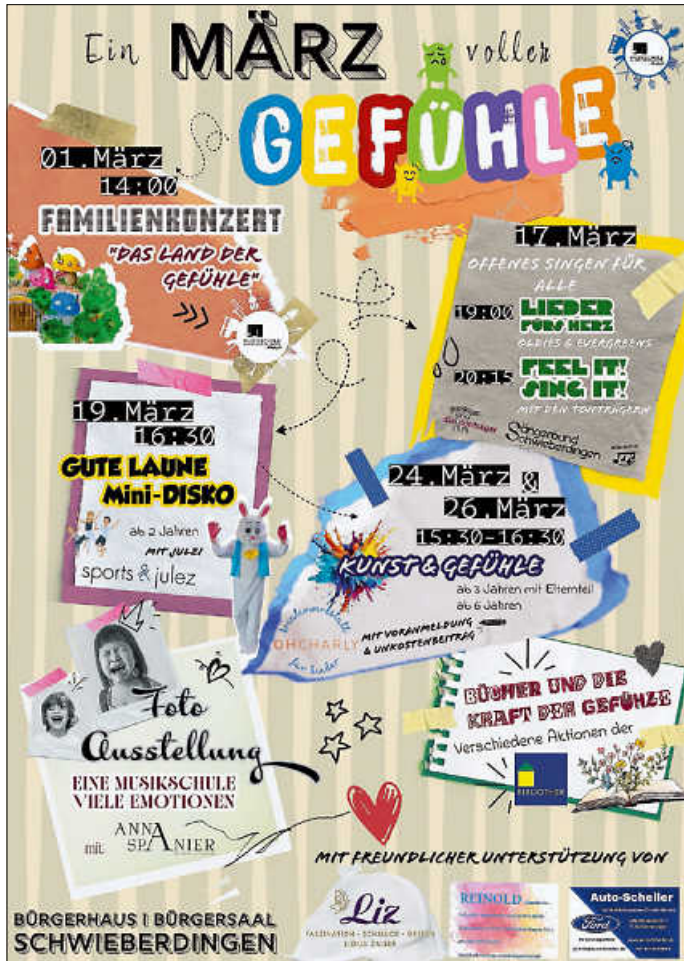 Ein MÄRZ voller
GEFÜHLE
01.März
14:00
FAMILIENKONZERT
"DAS LAND DER
GEFÜHLE"
17.März
OFFENES SINGEN FÜR
ALLE
19:00 LIEDER
FÜRS HERZ
OLDIES & EVERGREENS
20:15 FEEL IT!
SING IT!
MIT DEN TONTRÄGERN
Sängerbund
Schwieberdingen
19.März
16:30
GUTE LAUNE
Mini-DISKO
ab 2 Jahren
MIT JULEZ!
sports & julez
24.März &
26.März
15:30-16:30
KUNST & GEFÜHLE
ab 3 Jahren mit Elternteil
ab 6 Jahren
OHCHARLY
für Kinder
MIT VORANMELDUNG
& UNKOSTENBEITRAG
Foto
Ausstellung
EINE MUSIKSCHULE
VIELE EMOTIONEN
mit ANNA
SPANIER
BÜCHER UND DIE
KRAFT DER GEFÜHLE
Verschiedene Aktionen der
BIBLIOTHEK
MIT FREUNDLICHER UNTERSTÜTZUNG VON
BÜRGERHAUS I BÜRGERSAAL
SCHWIEBERDINGEN
Liz
REINOLD
Auto-Scheller
Ford